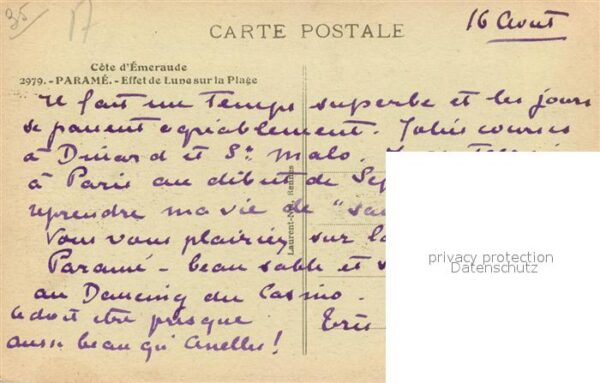 35
17
CARTE POSTALE
16 Aout
Côte d'Émeraude
2979. - PARAMÉ. - Effet de Lune sur la Plage
Il fait un temps superbe et les jours
se passent agréablement. Jolies courses
à Dinard et St Malo.
à Paris au début de Sep
reprendre ma vie de "sa
Vous vous plairiez sur la
Paramé - beau sable et s
au Dancing du Casino.
doit etre presque
aussi beau qu' !
Très
Laurent-Nel, Rennes
privacy protection
Datenschutz